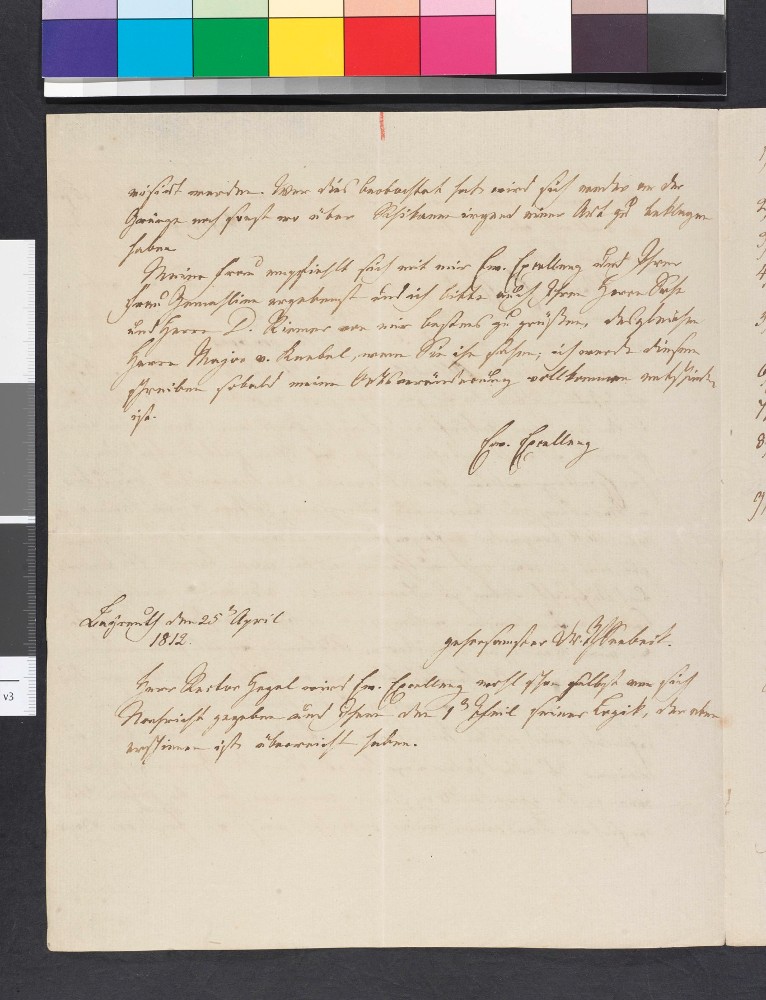 visirt werden. Wer dies beobachtet hat wird sich weder an der
Gränze noch sonst wo über Schikane irgend einer Art zu beklagen
haben
Meine Frau empfiehlt sich mit mir Ew. Excellenz und Ihrer
Frau Gemahlinn ergebenst und ich bitte auch Ihren Herrn Sohn
und Herrn D. Riemer von mir bestens zu grüßen, desgleichen
Herrn Major v. Knebel, wenn Sie ihn sehen; ich werde diesem
schreiben sobald meine Ortsveränderung vollkommen entschieden
ist.
Ew. Excellenz
Bayreuth den 25n April
1812.
gehorsamster Dr. TJSeebeck.
Herr Rector Hegel wird Ew. Excellenz wohl schon selbst von sich
Nachricht gegeben und Ihnen den 1n Theil seiner Logik, der eben
erschienen ist überreicht haben.
v3